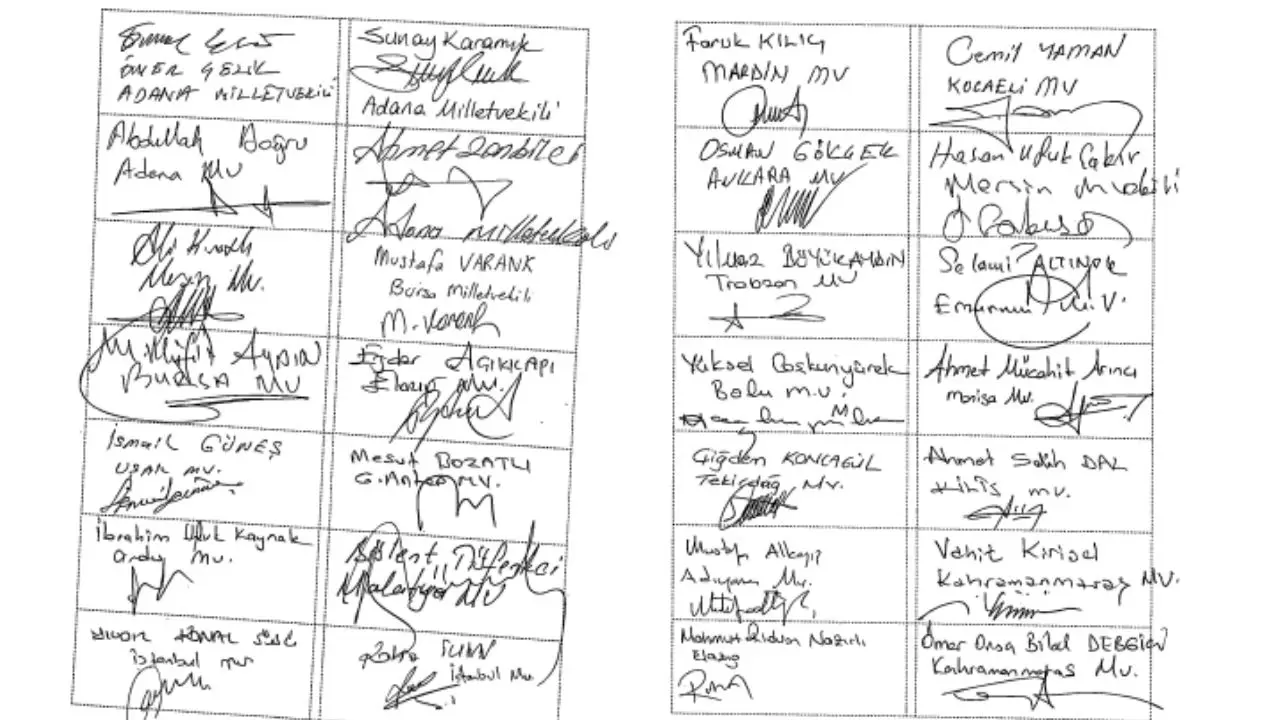 ÖMER ÇELİK
ADANA MİLLETVEKİLİ
Sunay Karamık
Adana Milletvekili
Abdullah Doğru
Adana MV
Ahmet Zenbilci
Adana Milletvekili
Ali Kıratlı
Mersin Mv.
Mustafa VARANK
Bursa Milletvekili
M. Varank
M. Müfit AYDIN
BURSA MV
Ejder AÇIKKAPI
Elazığ Mv.
İsmail GÜNEŞ
UŞAK MV.
Mesut BOZATLI
G.Antep MV.
İbrahim Ufuk Kaynak
Ordu Mv.
Bülent Tüfenkci
Malatya MV
İstanbul mv
İstanbul Mv.
Faruk KILIÇ
MARDİN MV
Cemil YAMAN
KOCAELİ MV
OSMAN GÖKÇEK
ANKARA MV
Hasan Ufuk Çakır
Mersin Mvekili
Yılmaz BÜYÜKAYDIN
Trabzon MV
Selami ALTINOK
Erzurum M.V.
Yüksel Coşkunyürek
Bolu m.v.
Ahmet Mücahit Arınç
manisa Mv.
Çiğdem KONCAGÜL
Tekirdağ MV.
Ahmet Salih DAL
KİLİS mv.
Mustafa Alkayış
Adıyaman Mv.
Vahit Kirişci
Kahramanmaraş MV.
Mahmut Rıdvan Nazırlı
Elazığ
Ömer Oruç Bilal DEBGİCİ
Kahramanmaraş Mv.